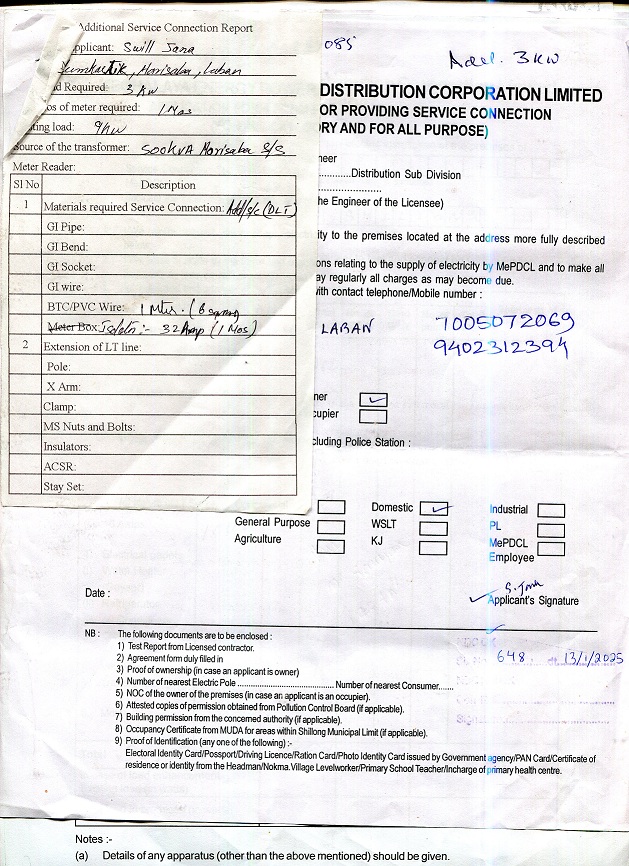 Additional Service Connection Report
pplicant: Swill Jana
Lumkartik, Morisaba, Laban
d Required: 3 KW
os of meter required: 1 Nos
ting load: 9KW
Source of the transformer: 500KVA Morisaba S/S
Meter Reader:
Sl No Description
1 Materials required Service Connection: Add/s/c (DLT)
GI Pipe:
GI Bend:
GI Socket:
GI wire:
BTC/PVC Wire: 1 Mtr. (6 sqmm)
Meter Box: 32 Amp (1 Nos)
2 Extension of LT line:
Pole:
X Arm:
Clamp:
MS Nuts and Bolts:
Insulators:
ACSR:
Stay Set:
085
Addl. 3 KW
DISTRIBUTION CORPORATION LIMITED
OR PROVIDING SERVICE CONNECTION
RY AND FOR ALL PURPOSE)
neer
..............Distribution Sub Division
he Engineer of the Licensee)
ity to the premises located at the address more fully described
ons relating to the supply of electricity by MePDCL and to make all
ay regularly all charges as may become due.
with contact telephone/Mobile number :
LABAN 7005072069
9402312394
ner
cupier
cluding Police Station :
Domestic Industrial
General Purpose WSLT PL
Agriculture KJ MePDCL
Employee
Date :
Applicant's Signature
NB : The following documents are to be enclosed :
1) Test Report from Licensed contractor.
2) Agreement form duly filled in
3) Proof of ownership (in case an applicant is owner)
4) Number of nearest Electric Pole .................................. Number of nearest Consumer.......
5) NOC of the owner of the premises (in case an applicant is an occupier).
6) Attested copies of permission obtained from Pollution Control Board (if applicable).
7) Building permission from the concerned authority (if applicable).
8) Occupancy Certificate from MUDA for areas within Shillong Municipal Limit (if applicable).
9) Proof of Identification (any one of the following) :-
Electoral Identity Card/Possport/Driving Licence/Ration Card/Photo Identity Card issued by Government agency/PAN Card/Certificate of
residence or identity from the Headman/Nokma.Village Levelworker/Primary School Teacher/Incharge of primary health centre.
648 13/1/2025
Notes :-
(a) Details of any apparatus (other than the above mentioned) should be given.